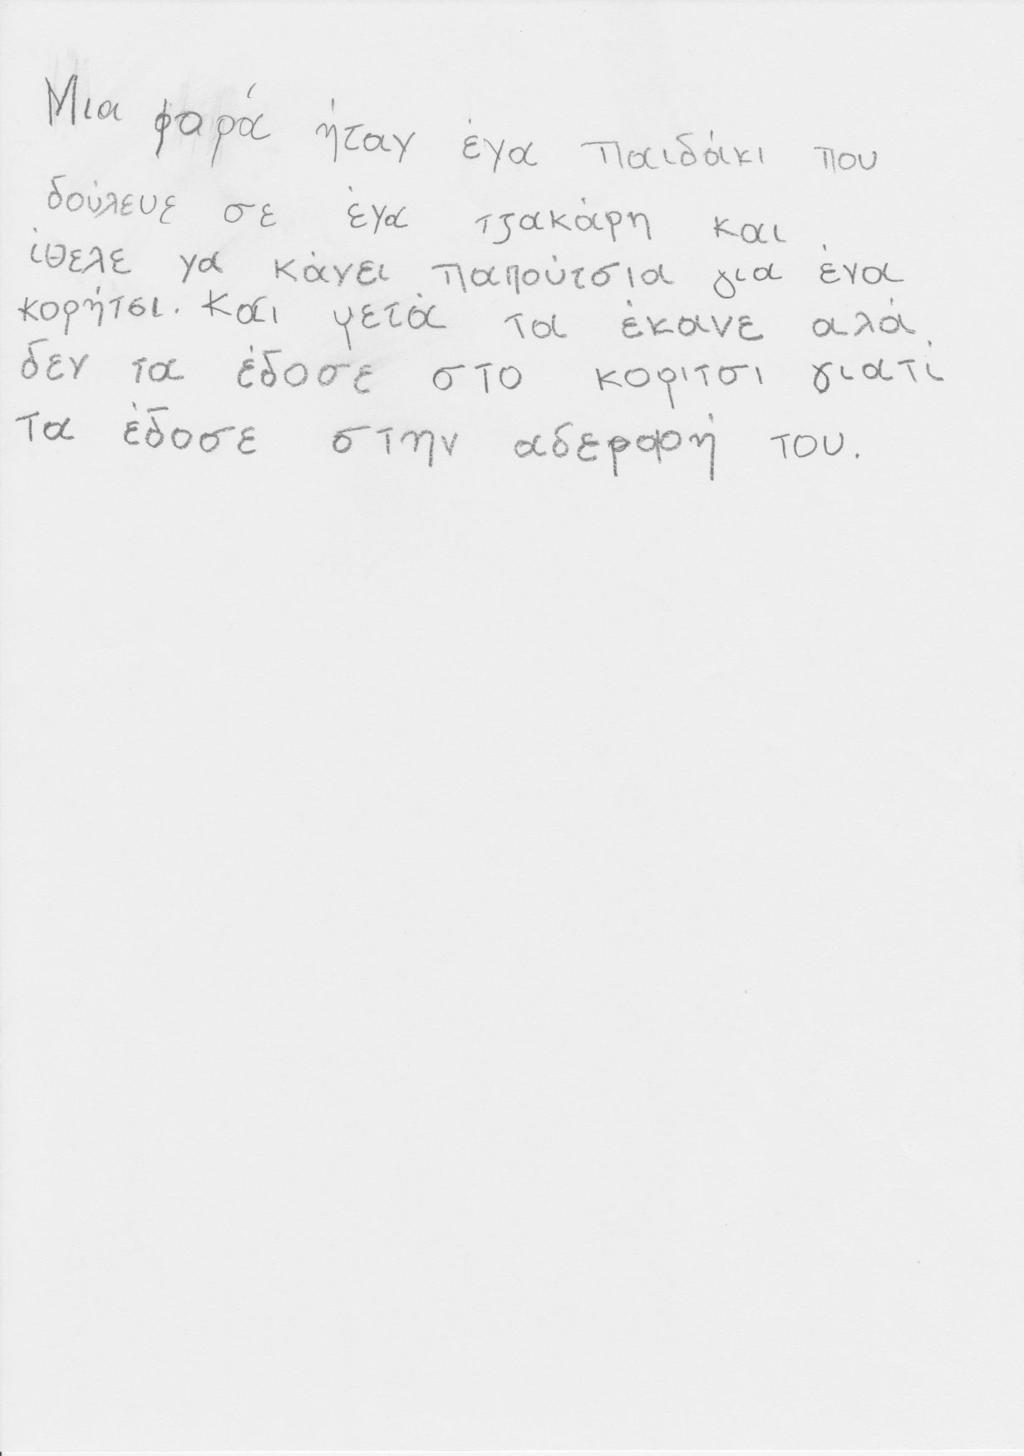 Μια φαρά ήταν ένα παιδάκι που
δούλευε σε ένα τζακάρη και
ίθελε να κάνει παπούτσια για ένα
κορήτσι. Και μετά τα έκανε αλά
δεν τα έδοσε στο κοριτσι γιατί
τα έδοσε στην αδερφή του.